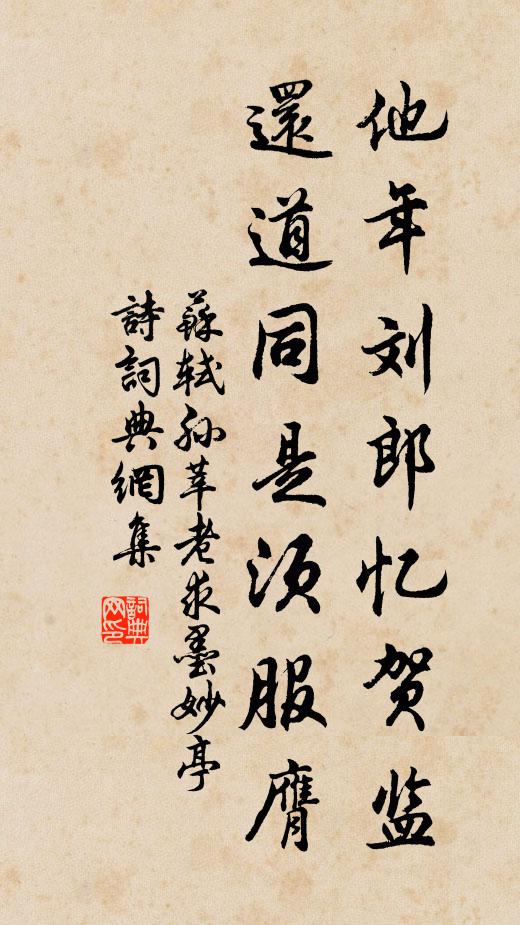 他年刘郎忆贺监
還道同是须服膺
蘇軾孙莘老求墨妙亭
詩詞典網集
詞典网印